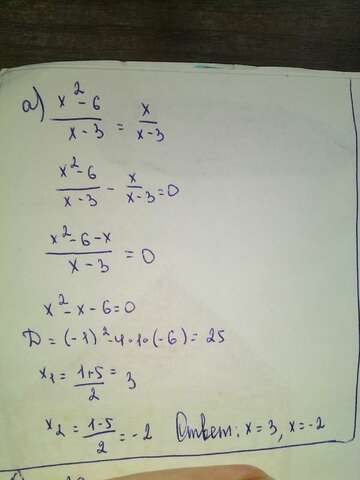 а) x²-6 / x-3 = x / x-3
x²-6 / x-3 - x / x-3 = 0
x²-6-x / x-3 = 0
x²-x-6=0
D=(-1)²-4·1·(-6)=25
x₁ = 1+5 / 2 = 3
x₂ = 1-5 / 2 = -2 Ответ: x=3, x=-2